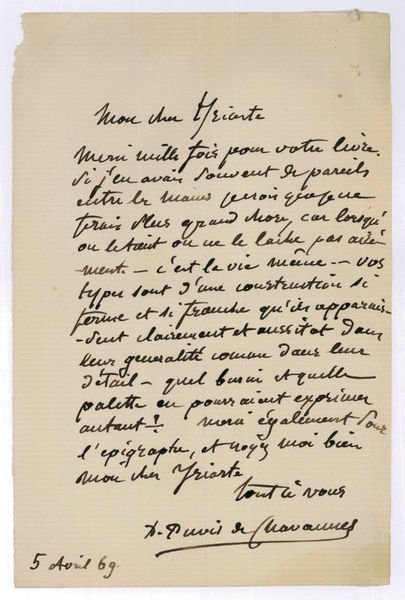 Mon cher Yriarte
Merci mille fois pour votre livre.
Si j'en avais souvent de pareils
entre les mains je crois que je ne
ferais plus grand chose, car lorsqu'
on le tient on ne le lache pas aisé-
ment — c'est la vie même — vos
types sont d'une construction si
ferme et si franche qu'ils apparais-
-sent clairement et aussitot dans
leur généralité comme dans leur
détail — quel burin et quelle
palette en pourraient exprimer
autant? merci également pour
l'épigraphe, et croyez moi bien
mon cher Yriarte
tout à vous
P. Puvis de Chavannes
5 Avril 69